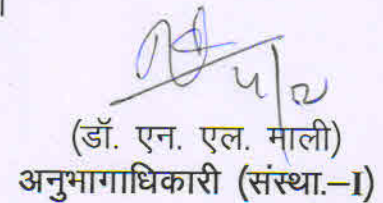 (डॉ. एन. एल. माली)
अनुभागाधिकारी (संस्था.–I)